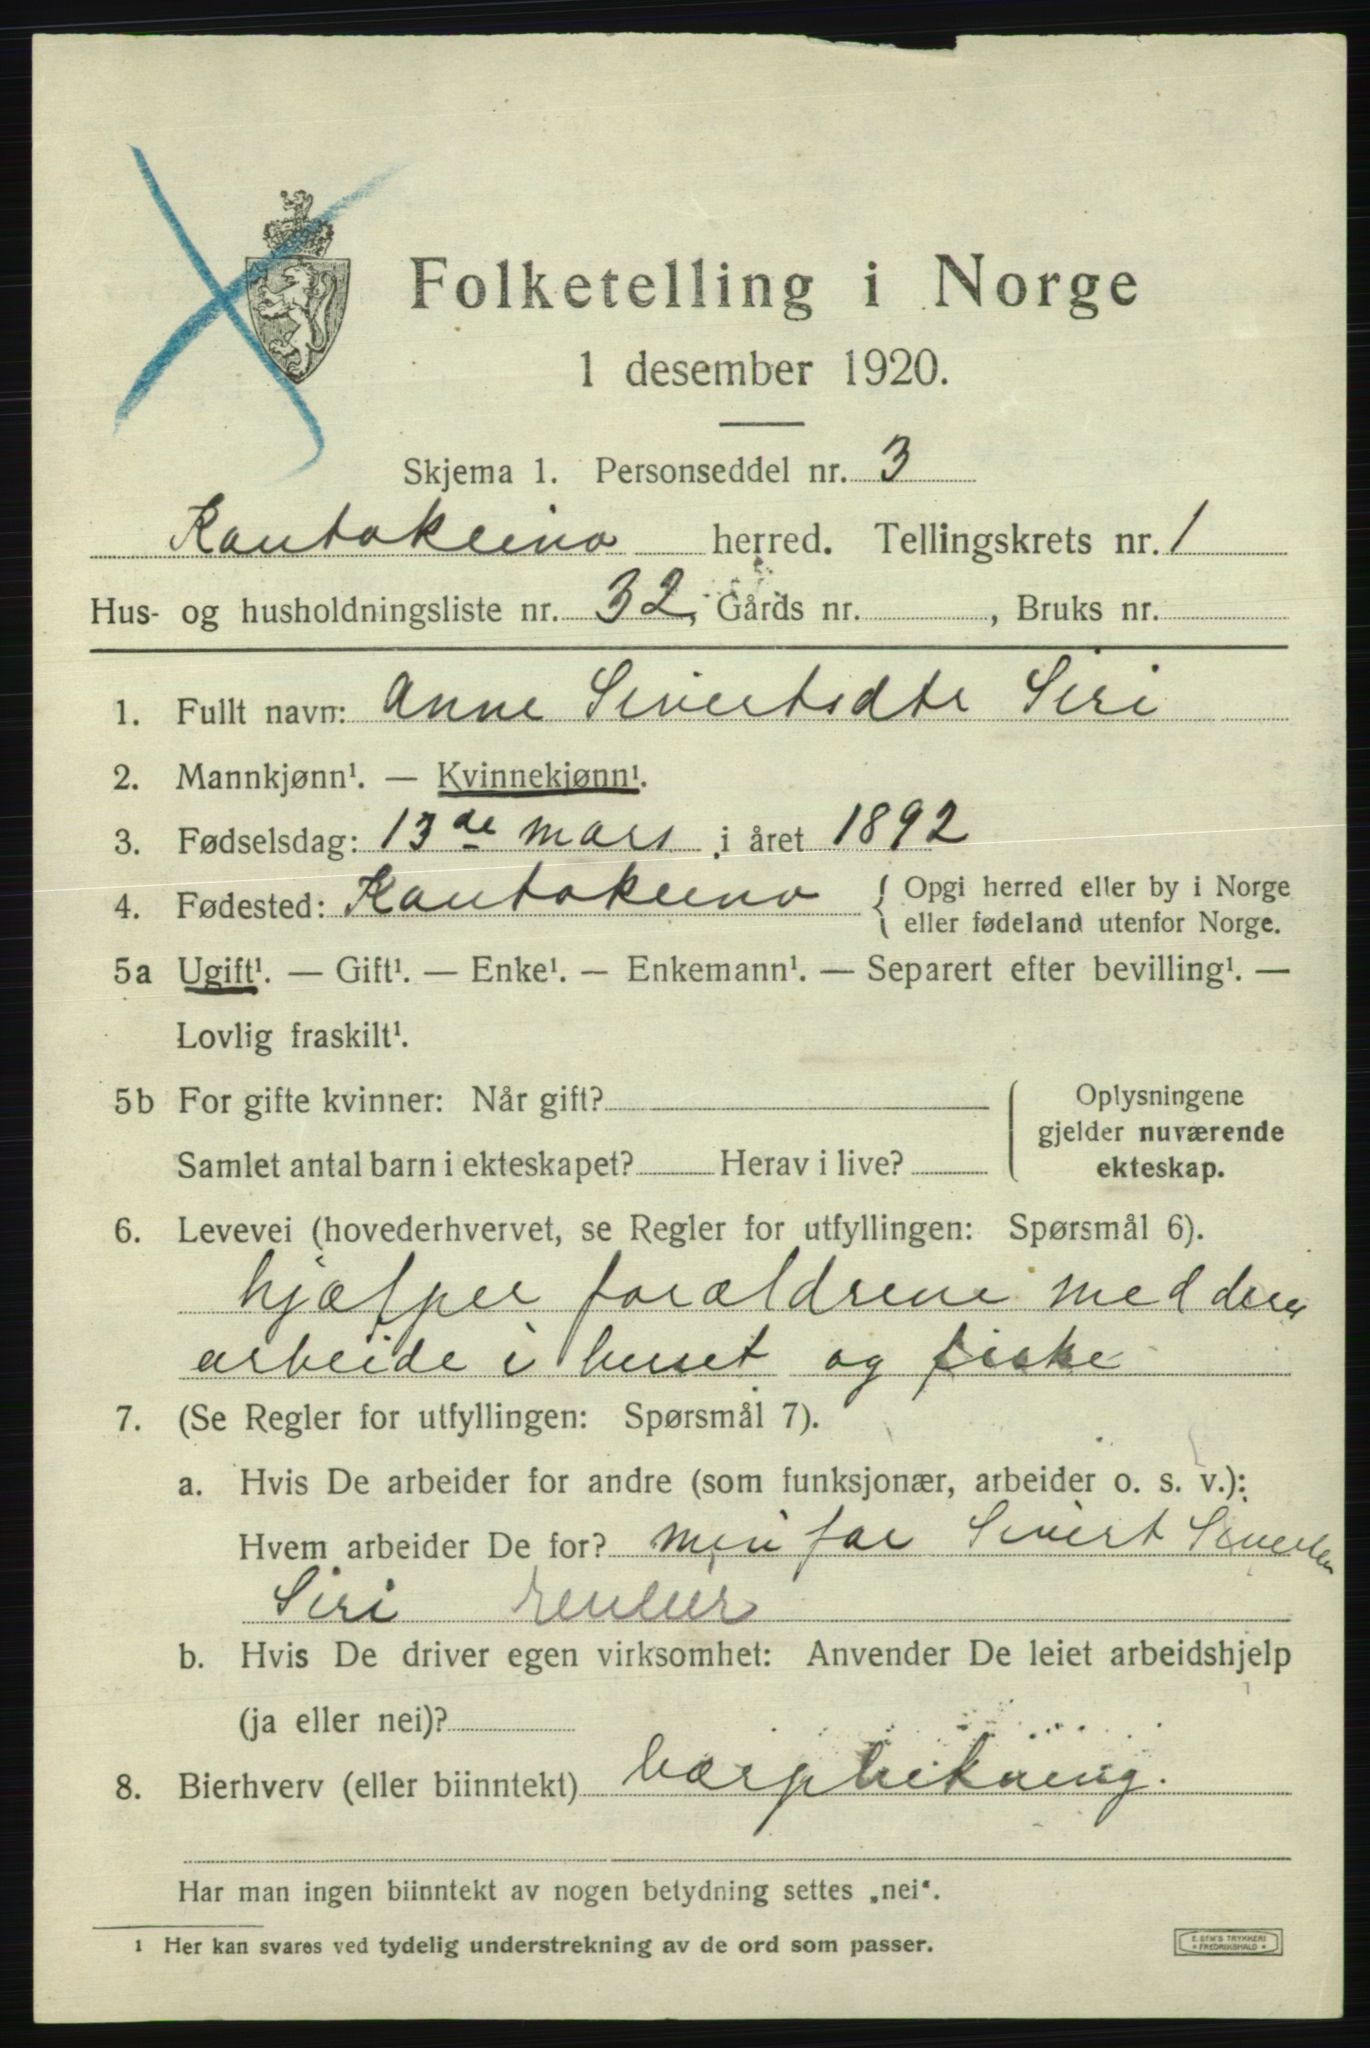 Folketelling i Norge
1 desember 1920.
Skjema 1. Personseddel nr. 3
Kautokeino herred. Tellingskrets nr. 1
Hus- og husholdningsliste nr. 32, Gårds nr. , Bruks nr.
1. Fullt navn: Anne Sivertsdtr Siri
2. Mannkjønn¹. — Kvinnekjønn¹.
3. Fødselsdag: 13de mars i året 1892
4. Fødested: Kautokeino { Opgi herred eller by i Norge
eller fødeland utenfor Norge.
5a Ugift¹. — Gift¹. — Enke¹. — Enkemann¹. — Separert efter bevilling¹. —
Lovlig fraskilt¹.
5b For gifte kvinner: Når gift? ( Oplysningene
gjelder nuværende
Samlet antal barn i ekteskapet? Herav i live? ekteskap.
6. Levevei (hovederhvervet, se Regler for utfyllingen: Spørsmål 6).
hjælper forældrene med deres
arbeide i huset og fiske
7. (Se Regler for utfyllingen: Spørsmål 7).
a. Hvis De arbeider for andre (som funksjonær, arbeider o. s. v.):
Hvem arbeider De for? min far Sivert Sivertsen
Siri
b. Hvis De driver egen virksomhet: Anvender De leiet arbeidshjelp
(ja eller nei)?
8. Bierhverv (eller biinntekt) bærplukning.
Har man ingen biinntekt av nogen betydning settes „nei“.
¹ Her kan svares ved tydelig understrekning av de ord som passer.
E. SEM'S TRYKKERI
* FREDRIKSHALD *